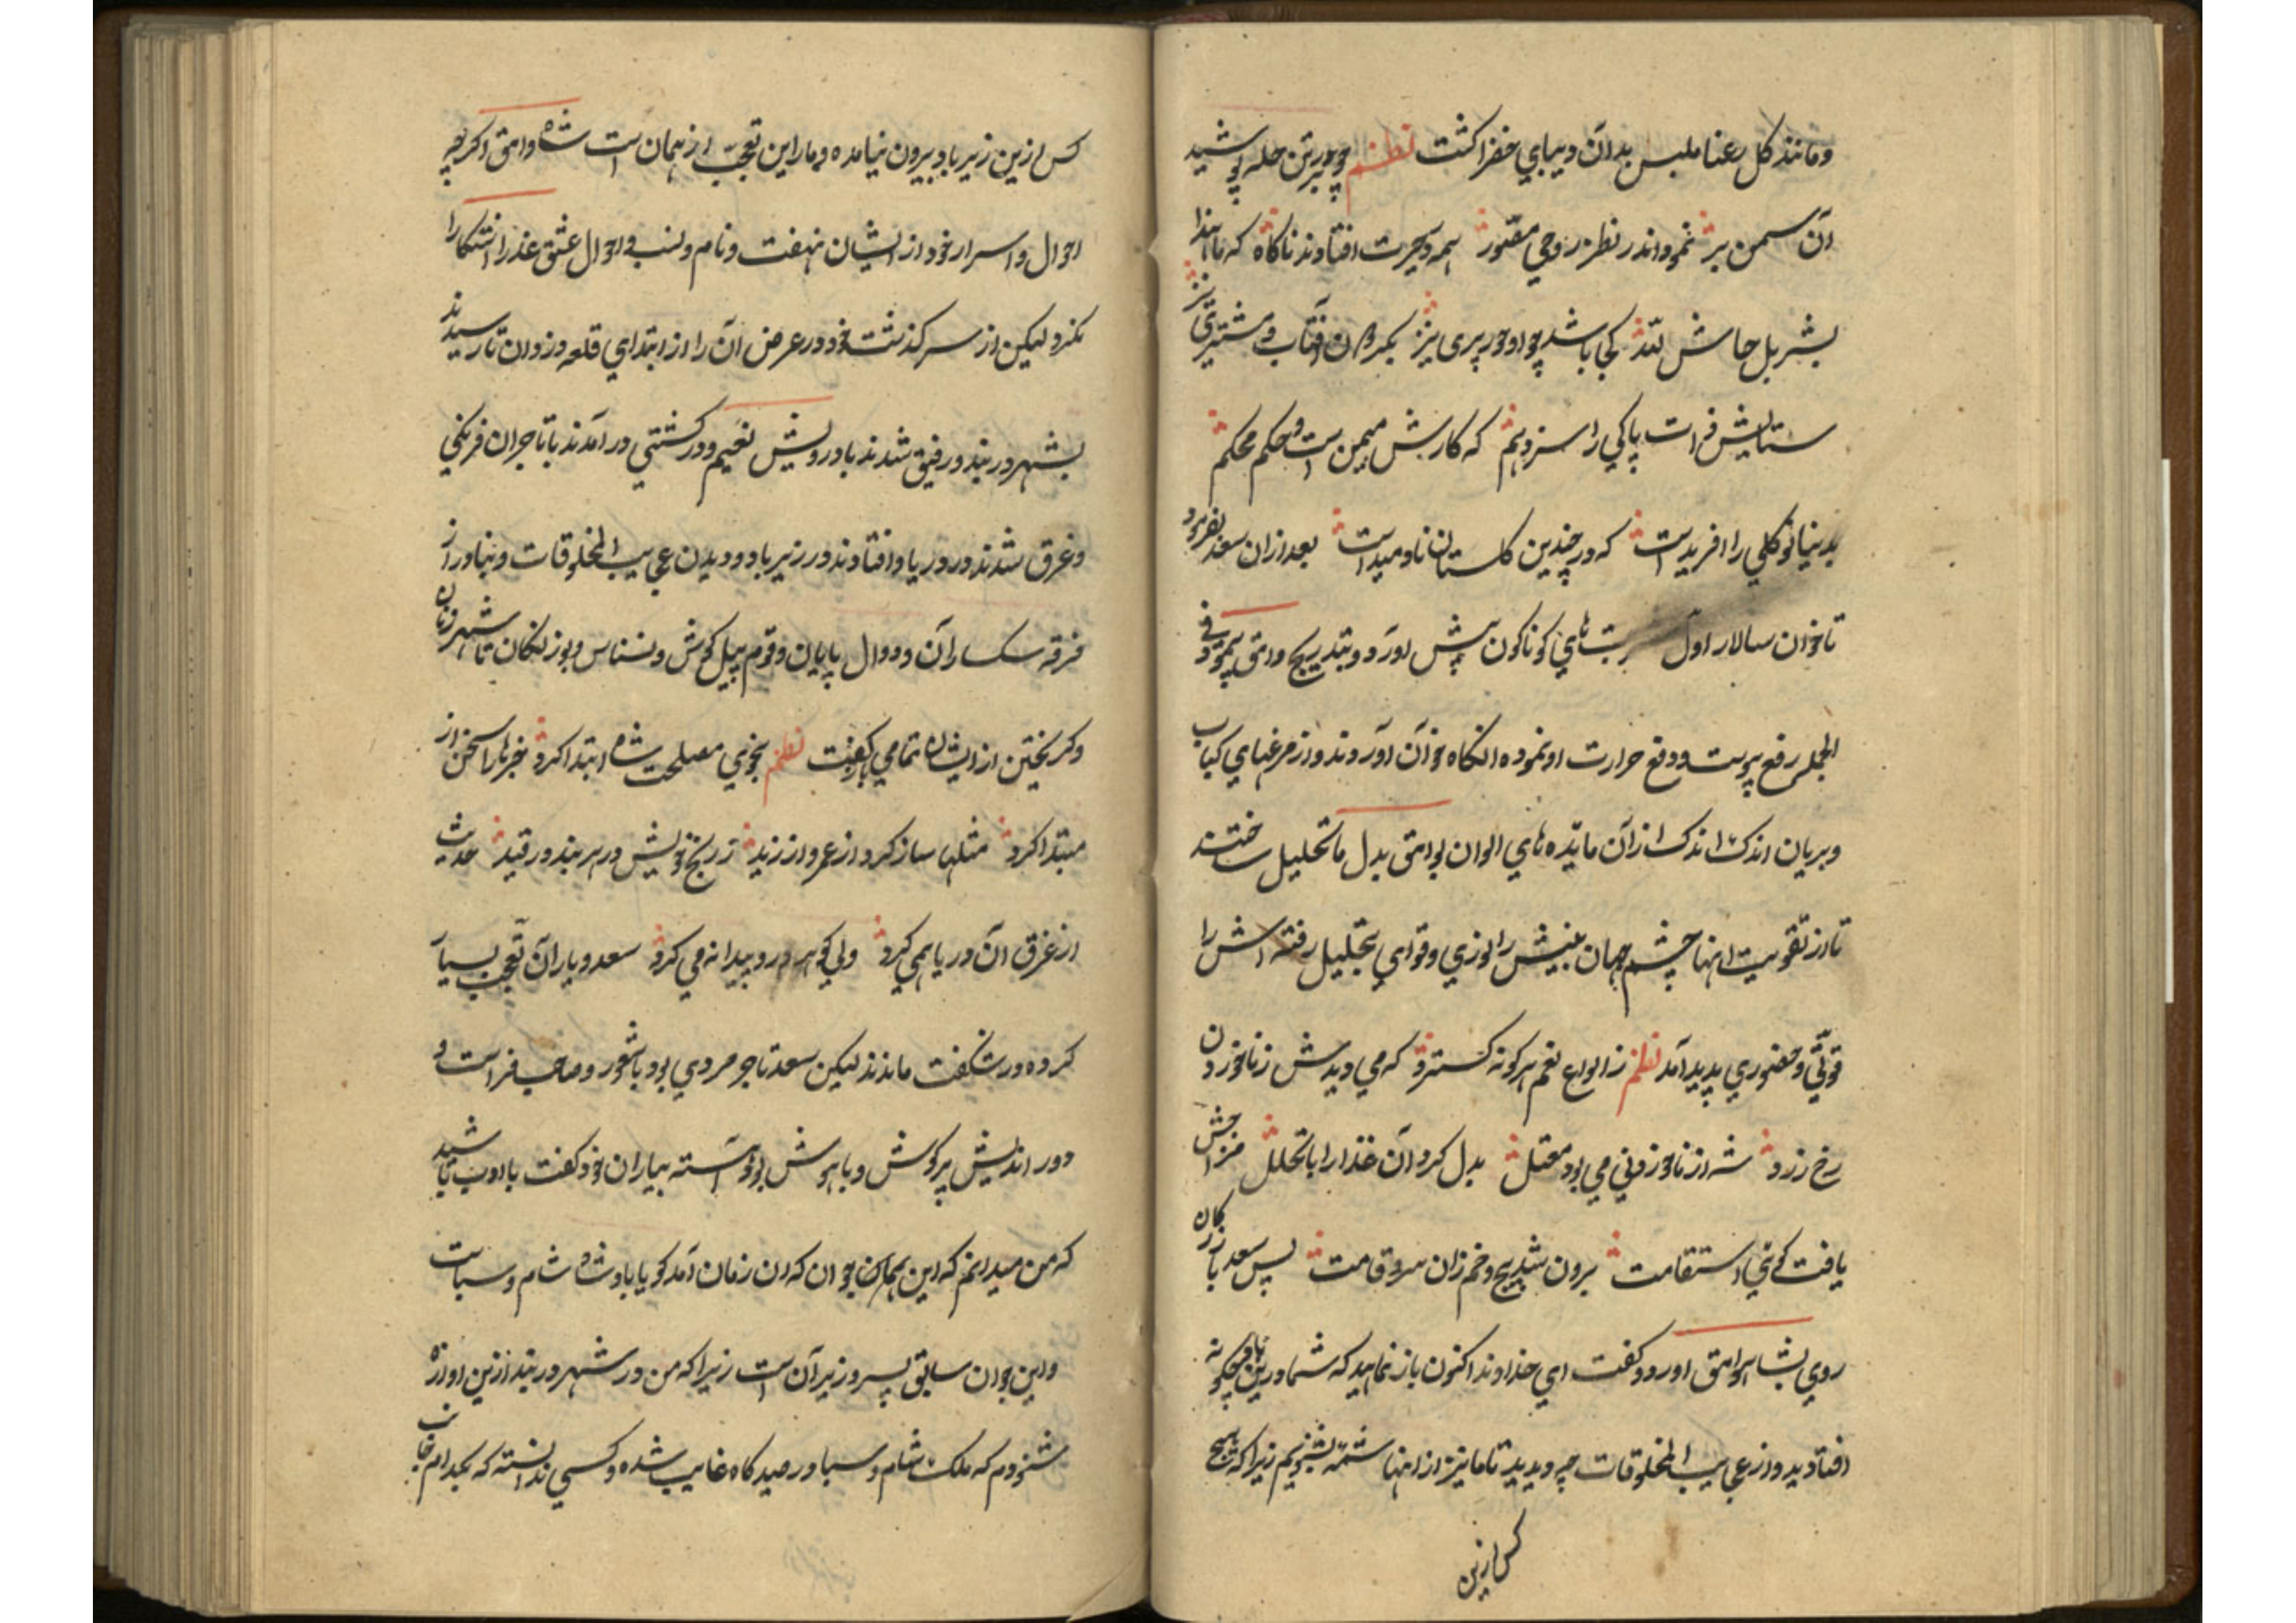 ومانند کل رعنا ملبس بدان دیبای خضرا کشت نظم چو بر تن حله پوشید
آن سمن بر نمود اندر نظر روحی مصور همه در حیرت افتادند ناکاه که ما هذا
بشر بل حاش لله کجا باشد چو او حور پری نیز آفتاب و مشتری نیز
ستایش پاکی را سزد هم که کارش میمن است و حکم محکم
بدینسانو کلی را افریدست که در چندین کلستان نادمیدست بعد ازان سعد بفرمود
تا خوان سالار اول شربت های کوناکون پیش اورد و بتدریج وامق پیمود و فی
الجمله رفع یبوست و دفع حرارت او نموده انکاه خوان آوردند و از مرغهای کباب
و بریان اندک اندک ازان مایده های الوان بوامق بدل ما تحلیل ساختند
تا از تقویت اینها چشم جهان بینش را نوری و قوای بتحلیل رفته اش را
قوتی و حضوری پدید آمد نظم ز انواع نعم هر کونه کسترد که می دیدش زنا خوردن
رخ زرد شه از ناخوردنی می بود معتل بدل کرد آن غذا را با تحلل مزاجش
یافت کوئی استقامت برون شد پیچ و خم زان سرو قامت پس سعد بازرکان
روی بشاه وامق اورد و کفت ای خداوند اکنون باز نمایید که شما درین بنادر چکونه
افتادید و از عجایب المخلوقات چه دیدید تا ما نیز از اینها شمه بشنویم زیرا که هیچ
کس ازین
کس ازین زیرباد بیرون نیامده و مارا این تعجب از همان است شاه وامق اکرچه
احوال و اسرار خود از ایشان نهفت و نام و نسب و احوال عشق عذرا اشکارا
نکرد لیکن از سرکذشت خود در عرض آن را از ابتدای قلعه دزدان تا رسیدند
بشهر دربند و رفیق شدند با درویش نعیم و در کشتی در آمدند با تاجران فرنکی
و غرق شدند در دریا و افتادند در زیرباد و دیدن عجایب المخلوقات و بنادر از
فرقه سکساران و دوال پایان و قوم پیل کوش و نسناس و بوزنکان تا شهر زنان
و کریختن از ایشان تمامی باز کفت نظم بخوبی مصلحت شاه ابتدا کرد خبرها را سخن از
مبتدا کرد مثلها ساز کرد از عمرو از زید ز رنج خویش در هر بند و در قید حدیث
از غرق آن دریا همی کرد ولی کوهر درو پیدا نه می کرد سعد و یاران تعجب بسیار
کرده در شکفت ماندند لیکن سعد تاجر مردی بود با شعور و صاحب فراست و
دور اندیش پر کوش و با هوش بود آهسته بیاران خود کفت با ادب باشید
که من میدانم که این همان جوان که ان زمان آمد کویا پادشاه شام و سباست
و این جوان سابق پسر وزیر آن است زیرا که من در شهر دربند ازین اوازه
شنودم که ملک شام و سبا در صیدکاه غایب شده و کسی ندانسته که بکدام جانب